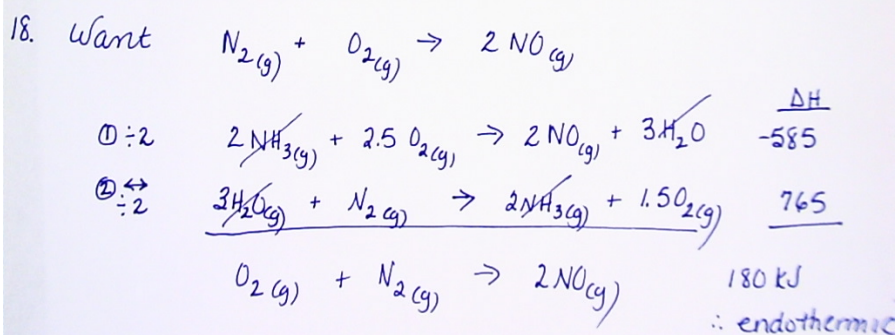 18. Want N2(g) + O2(g) → 2 NO(g)
ΔH
① ÷2 2 NH3(g) + 2.5 O2(g) → 2 NO(g) + 3H2O -585
② ↔ ÷2 3H2O(g) + N2(g) → 2NH3(g) + 1.5O2(g) 765
O2(g) + N2(g) → 2NO(g) 180 kJ
∴ endothermic